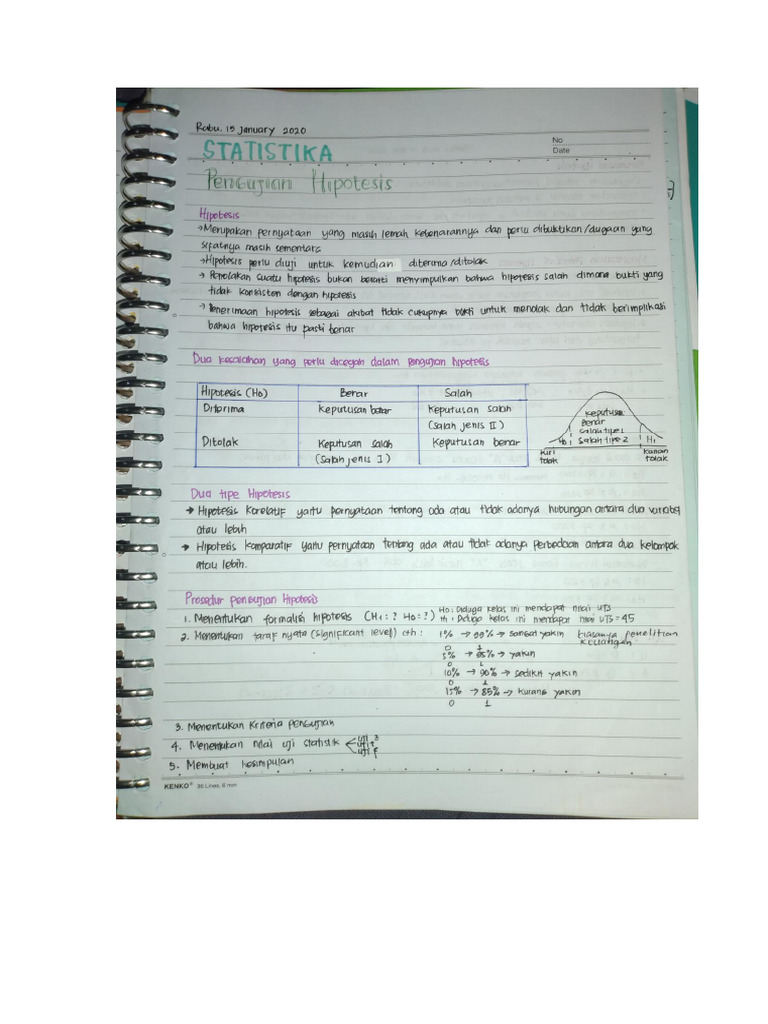 Rabu, 15 January 2020
No
Date
STATISTIKA
Pengujian Hipotesis
Hipotesis
→ Merupakan pernyataan yang masih lemah kebenarannya dan perlu dibuktikan/dugaan yang
sifatnya masih sementara
→ Hipotesis perlu diuji untuk kemudian diterima/ditolak
→ Penolakan suatu hipotesis bukan berarti menyimpulkan bahwa hipotesis salah dimana bukti yang
tidak konsisten dengan hipotesis
→ Penerimaan hipotesis sebagai akibat tidak cukupnya bukti untuk menolak dan tidak berimplikasi
bahwa hipotesis itu pasti benar
Dua kesalahan yang perlu dicegah dalam pengujian hipotesis
Hipotesis (Ho) Benar Salah
Diterima Keputusan benar Keputusan salah
(Salah jenis II)
Ditolak Keputusan salah Keputusan benar
(Salah jenis I)
Keputusan
Benar
Salah tipe 1
Ho Salah tipe 2 H1
Kiri Kanan
tolak tolak
Dua tipe Hipotesis
→ Hipotesis Korelatif yaitu pernyataan tentang ada atau tidak adanya hubungan antara dua variabel
atau lebih
→ Hipotesis Komparatif yaitu pernyataan tentang ada atau tidak adanya perbedaan antara dua kelompok
atau lebih.
Prosedur pengujian Hipotesis
1. Menentukan formalisi hipotesis (H1 = ? Ho = ?) Ho : Diduga kelas ini mendapat nilai UTS
H1 : Diduga kelas ini mendapat nilai UTS = 45
2. Menentukan taraf nyata (significant level) cth : 1% → 99% → sangat yakin biasanya penelitian
keuangan
0 1
5% → 95% → yakin
0 1
10% → 90% → sedikit yakin
0 1
15% → 85% → kurang yakin
0 1
3. Menentukan kriteria pengujian
4. Menentukan nilai uji statistik uji z
uji t
uji f
5. Membuat kesimpulan
KENKO® 30 Lines, 6 mm